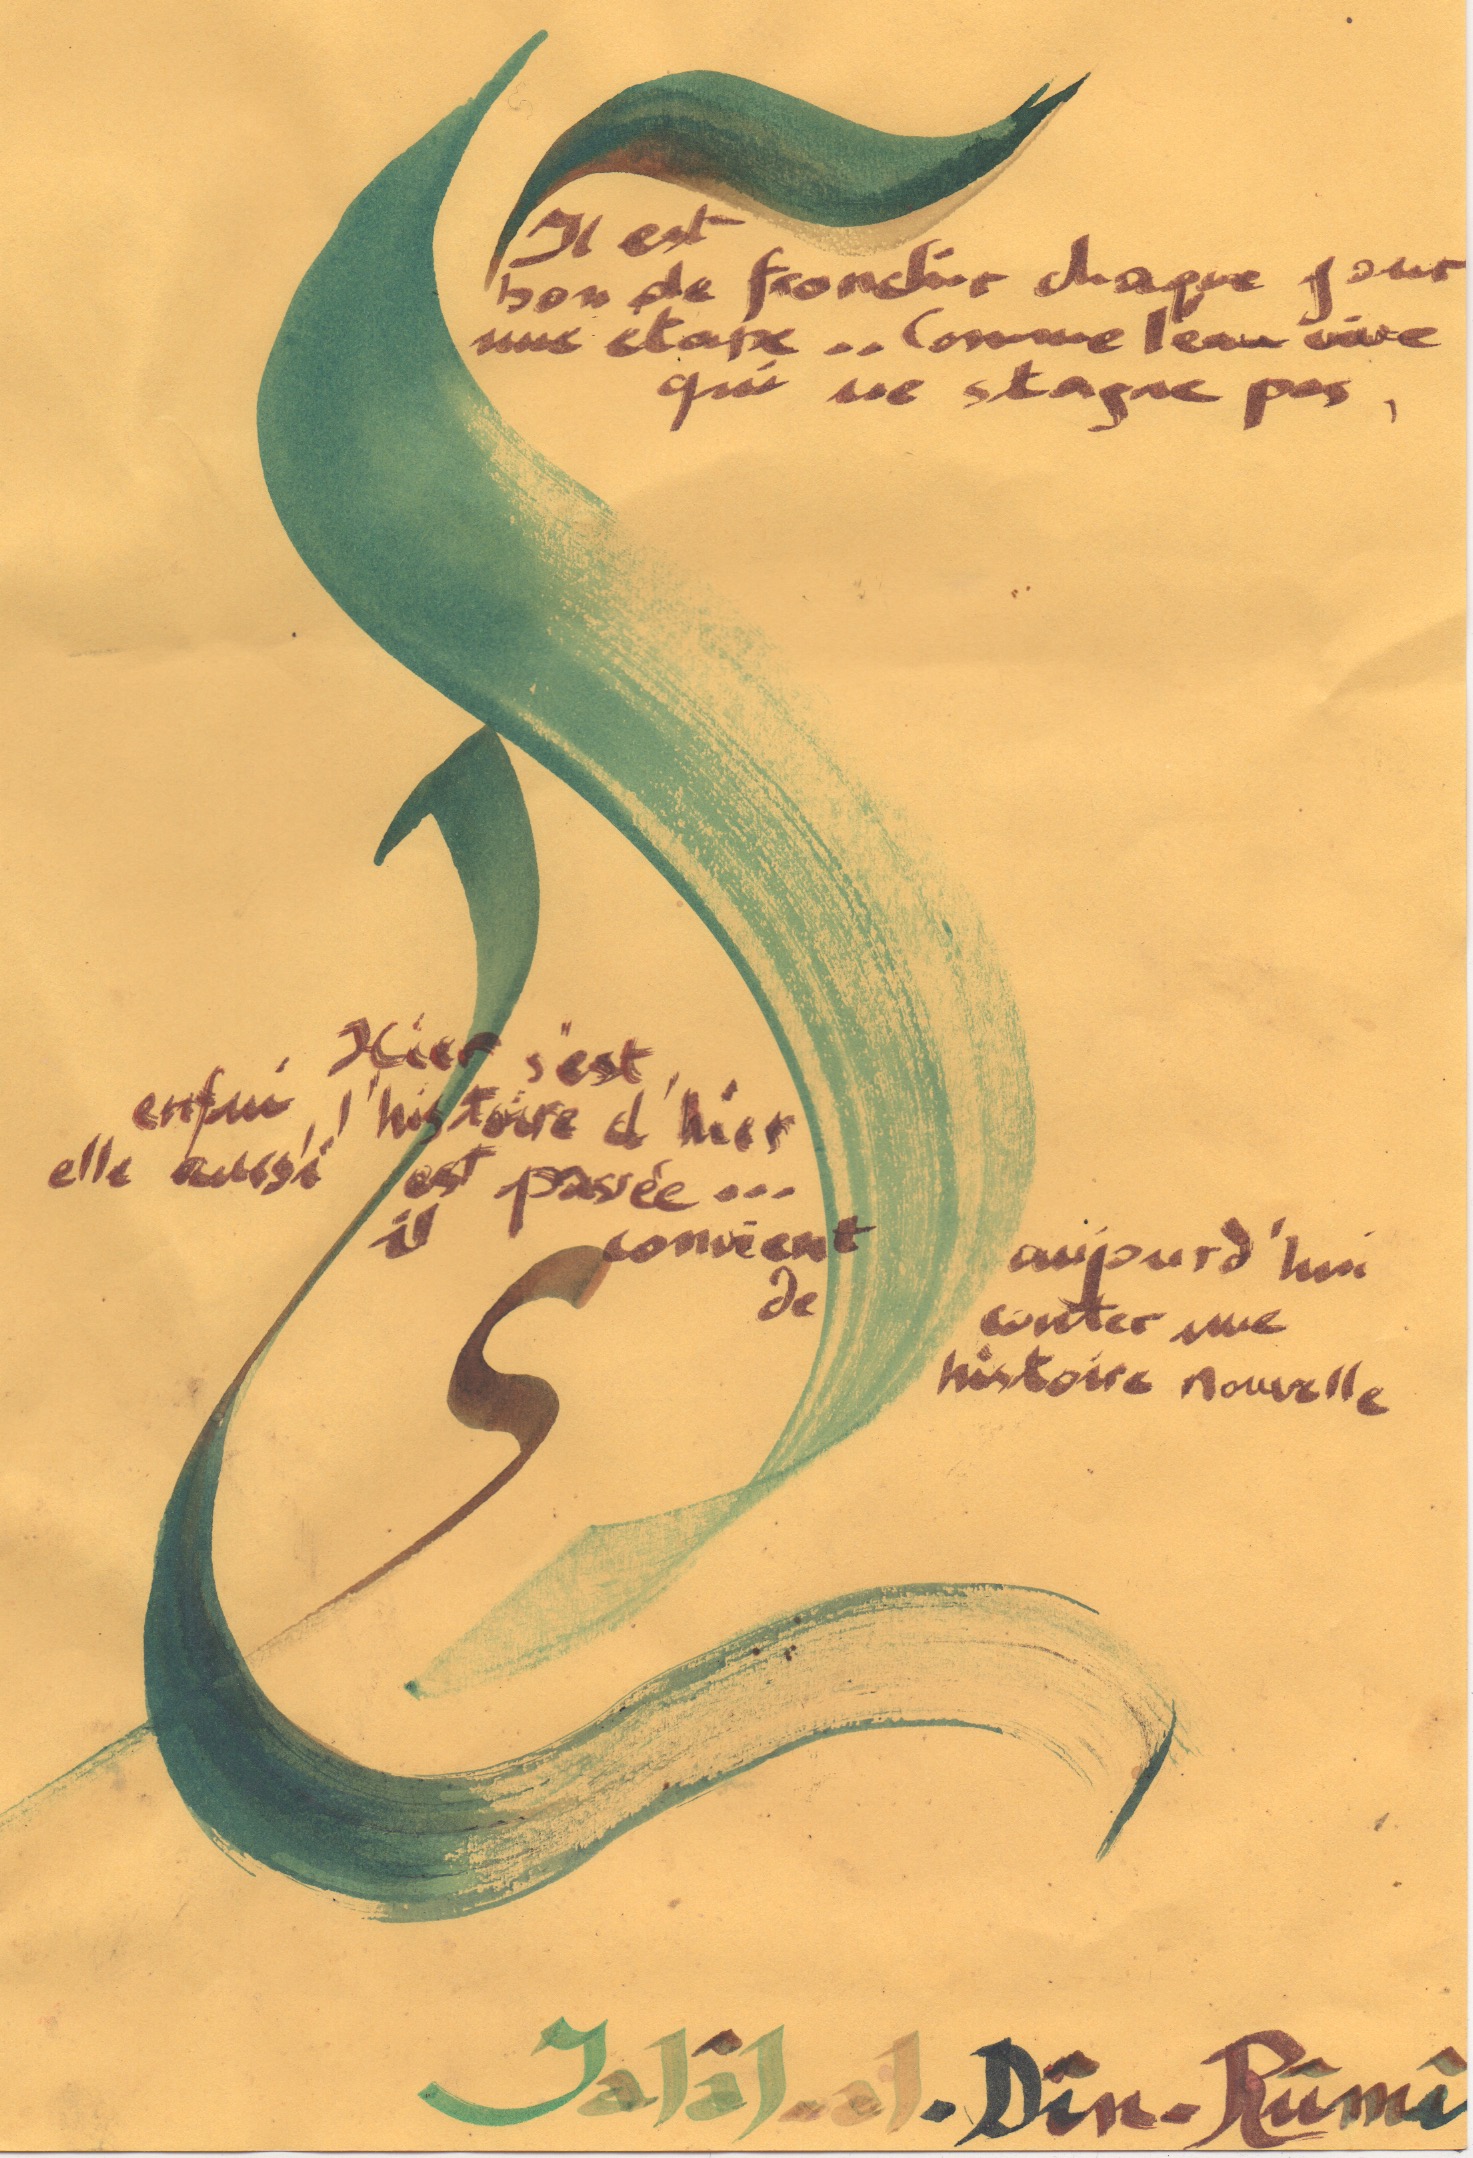 Il est
bon de franchir chaque jour
une étape .. Comme l'eau vive
qui ne stagne pas,
Hier s'est
enfui, l'histoire d'hier
elle aussi est passée ...
il convient
de
aujourd'hui
conter une
histoire nouvelle
Jalâl-al-Dîn-Rûmî